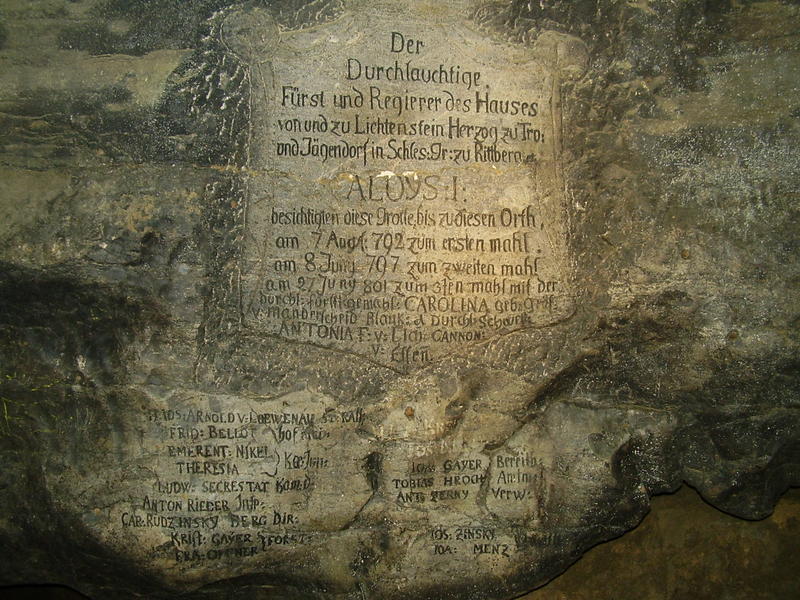 Der
Durchlauchtige
Fürst und Regierer des Hauses
von und zu Lichtenstein Herzog zu Tro:
und Jägendorf in Schles: Gr: zu Rittberg
ALOYS: I:
besichtigten diese Grotte, bis zu diesen Orth,
am 7 Augst: 792 zum ersten mahl.
am 8 Juny 797 zum zweiten mahl
am 27 Juny 801 zum 3ten mahl mit der
durchl: fürstl: gemahl: CAROLINA geb: Gräf:
v: Manderscheid Blank: d Durchl: schwest:
ANTONIA F: v: Lich: CANNON:
v: Essen.
ARNOLD V: LOEWENAU ST: RATH
FRID: BELLOT hof
EMERENT: NIKEL
THERESIA
LUDW: SECRESTAT Kam:D:
ANTON RIEDER Insp:
CAR: RUDZINSKY BERG DIR:
KRIST: GAYER FORST:
FRA:
IOS: GAYER Bereith:
TOBIAS HROCH Amtm:
ANT: ZERNY Verw:
IOS: ZINSKY
IOA: MENZ